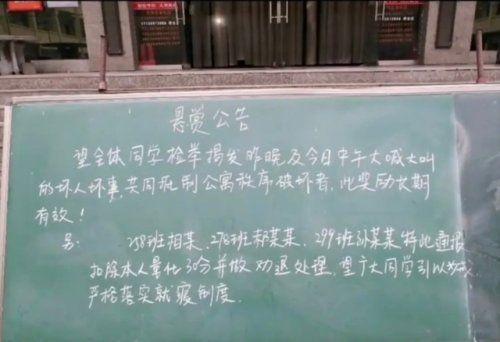 悬赏公告
望全体同学检举揭发昨晚及今日中午大喊大叫
的坏人坏事,共同批判公寓秩序破坏者,此奖励长期
有效!
另: 258班相某、278班郝某某、299班孙某某特此通报
扣除本人量化30分并做劝退处理,望广大同学引以为戒,
严格落实就寝制度.